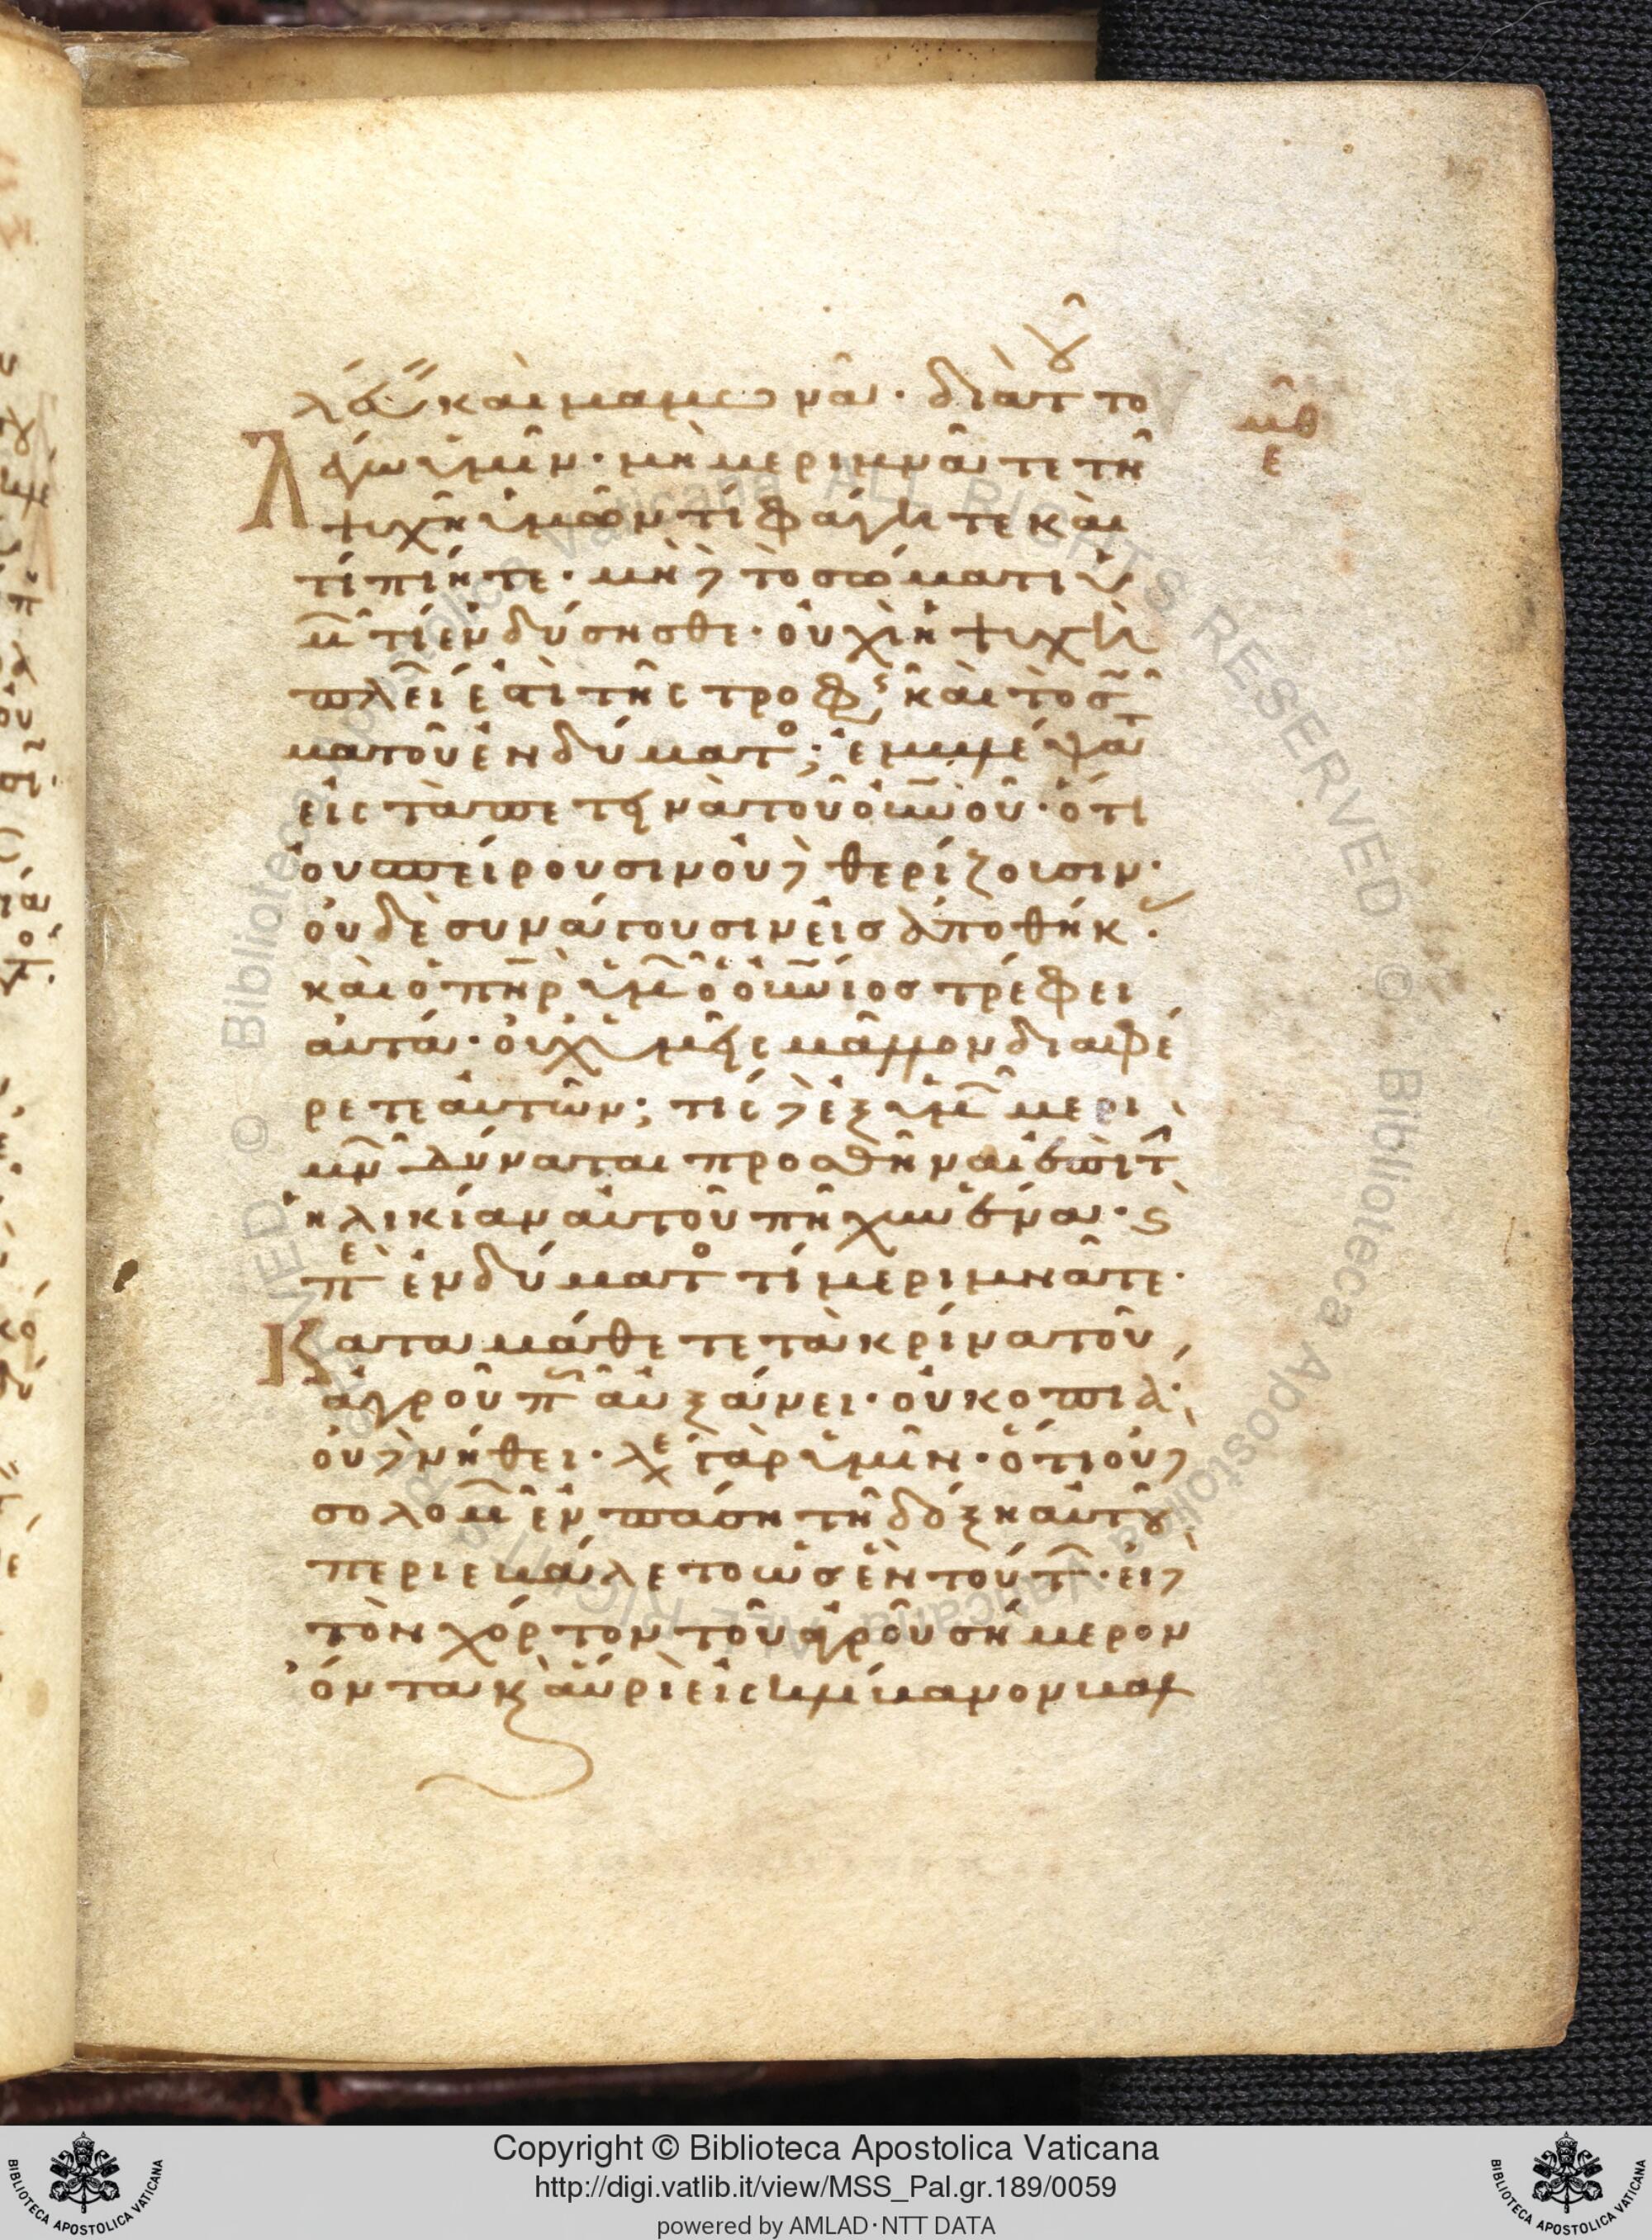 λεύειν καὶ μαμωνᾶ · διὰ τοῦτο
λέγω ὑμῖν · μὴ μεριμνᾶτε τῇ
ψυχῇ ὑμῶν τί φάγητε καὶ
τί πίητε · μηδὲ τὸ σώματι ὑ
μῶν τί ἐνδύσησθε · οὐχὶ ἡ ψυχὴ
πλεῖόν ἐστι τῆς τροφῆς καὶ τὸ σῶ
μα τοῦ ἐνδύματος; ἐμβλέψατε
εἰς τὰ πετηνὰ τοῦ οὐνοῦ · ὅτι
οὐ σπείρουσιν οὐδὲ θερίζουσιν ·
οὐδὲ συνάγουσιν εἰς ἀποθήκας ·
καὶ ὁ πηρ ὑμῶν ὁ οὐνιος τρέφει
αὐτά · οὐχ ὑμεῖς μᾶλλον διαφέ
ρετε αὐτῶν; τίς δὲ ἐξ ὑμῶν μερι
μνῶν δύναται προσθῆναι ἐπὶ τὴν
ἡλικίαν αὐτοῦ πῆχυν ἕνα · καὶ
περὶ ἐνδύματος τί μεριμνᾶτε ·
Καταμάθετε τὰ κρίνα τοῦ
ἀγροῦ πῶς αὐξάνει · οὐ κοπιᾷ ·
οὐδὲ νήθει · λέγω γὰρ ὑμῖν · ὅτι οὐδὲ
σολομῶν ἐν πάσῃ τῇ δόξῃ αὐτοῦ
περιεβάλετο ὡς ἓν τούτων · εἰ δὲ
τὸν χόρτον τοῦ ἀγροῦ σήμερον
ὄντα καὶ αὔριον εἰς κλίβανον βαλ
μθ
ε
Copyright © Biblioteca Apostolica Vaticana
http://digi.vatlib.it/view/MSS_Pal.gr.189/0059
powered by AMLAD·NTT DATA
BIBLIOTECA APOSTOLICA VATICANA
BIBLIOTECA APOSTOLICA VATICANA